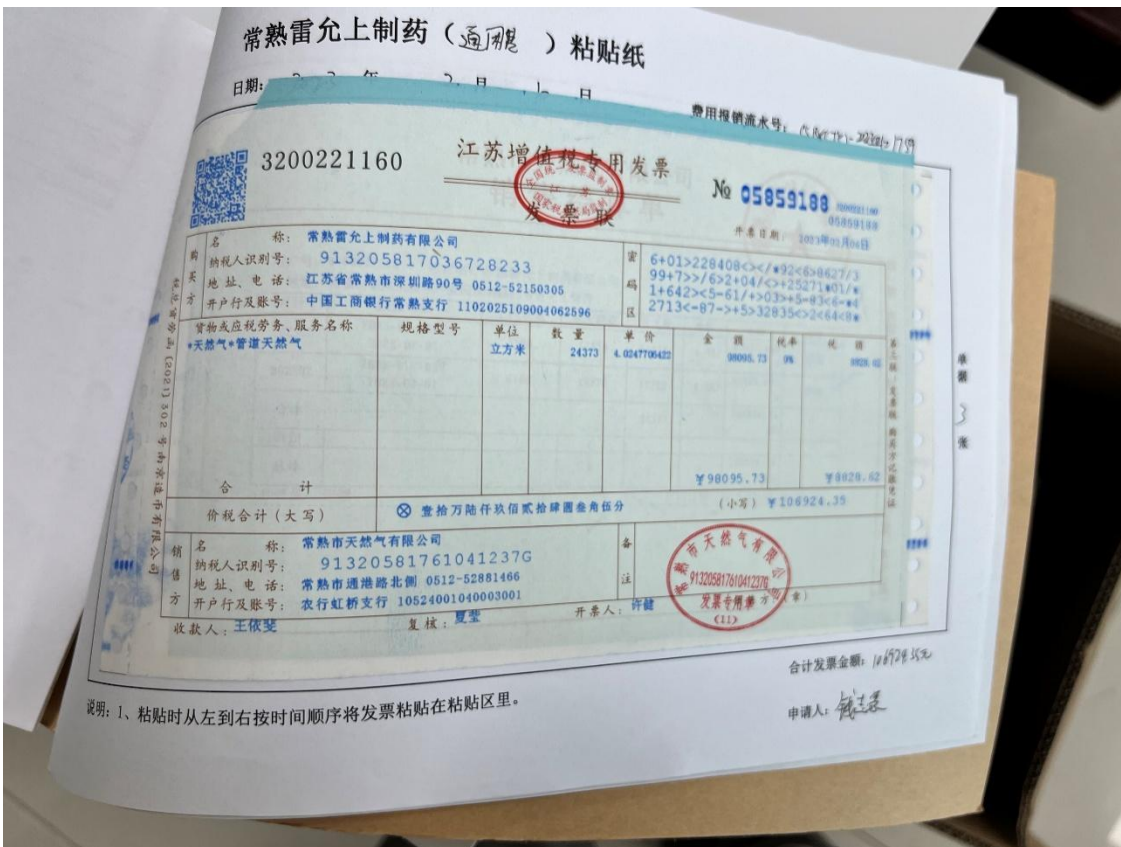 常熟雷允上制药（通用憇 ）粘贴纸
日期: 年 2 月 日
费用报销流水号:
江苏增值税专用发票
3200221160
№ 05859188 3200221160
05859188
全国统一发票监制章
江苏
国家税务总局监制
发票联
开票日期: 2023年03月04日
购买方
名 称: 常熟雷允上制药有限公司
纳税人识别号: 913205817036728233
地 址、电 话: 江苏省常熟市深圳路90号 0512-52150305
开户行及账号: 中国工商银行常熟支行 1102025109004062596
密码区
6+01>228408<></*92<6>8627/3
99+7>>/6>2+04/<>+25271*01/*
1+642><5-61/+>03>+5-83<6-*4
2713<-87->+5>32835<>2<64<8*
货物或应税劳务、服务名称 规格型号 单位 数 量 单 价 金 额 税率 税 额
*天然气*管道天然气 立方米 24373 4.0247706422 98095.73 9% 8828.62
合 计 ￥98095.73 ￥8828.62
价税合计（大写） ⊗ 壹拾万陆仟玖佰贰拾肆圆叁角伍分 （小写） ￥106924.35
销售方
名 称: 常熟市天然气有限公司
纳税人识别号: 91320581761041237G
地 址、电 话: 常熟市通港路北侧 0512-52881466
开户行及账号: 农行虹桥支行 10524001040003001
备注
常熟市天然气有限公司
91320581761041237G
发票专用章
(11)
收款人: 王依斐 复核: 夏莹 开票人: 许健 方 章）
第三联：发票联 购买方记账凭证
单据 3 张
合计发票金额: 106924.35元
申请人:
说明: 1、粘贴时从左到右按时间顺序将发票粘贴在粘贴区里。